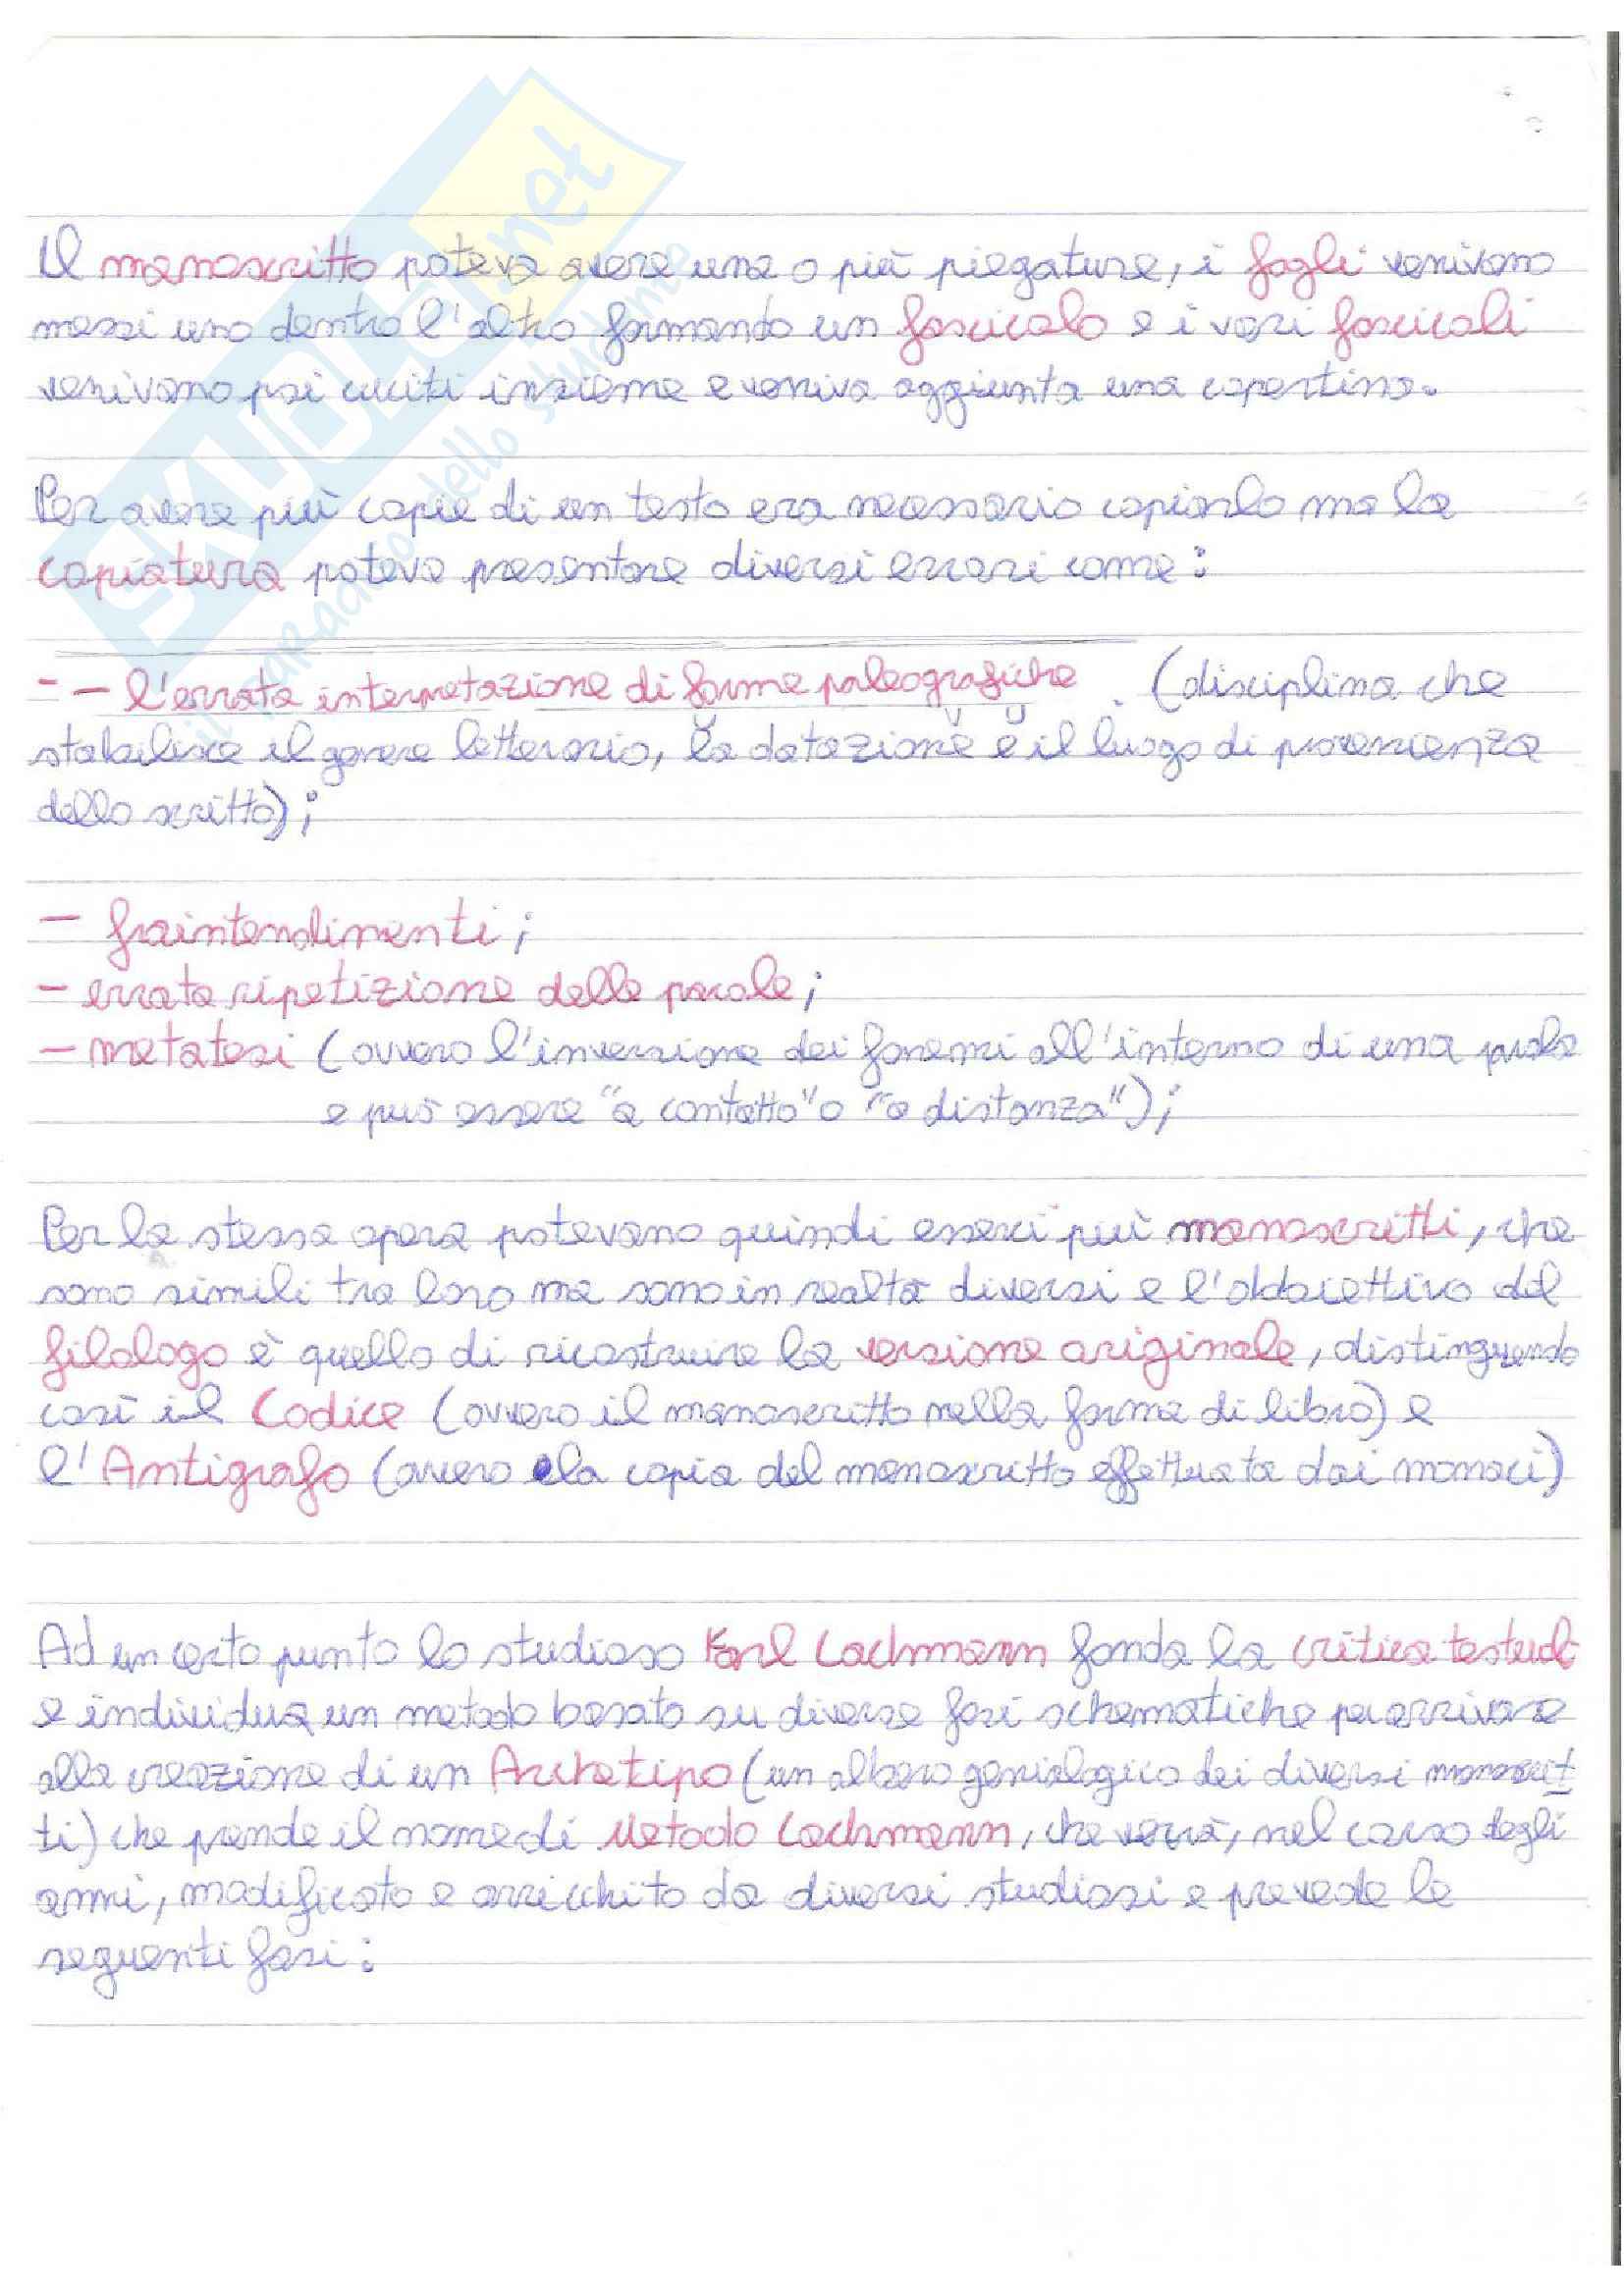 SKUOLA.net
il paradiso dello studente
Il manoscritto poteva avere una o più piegature, i fogli venivano
messi uno dentro l'altro formando un fascicolo e i vari fascicoli
venivano poi cuciti insieme e veniva aggiunta una copertina.
Per avere più copie di un testo era necessario copiarlo ma la
copiatura poteva presentare diversi errori come:
- - l'errata interpretazione di forme paleografiche (disciplina che
stabilisce il genere letterario, la datazione e il luogo di provenienza
dello scritto);
- fraintendimenti;
- errata ripetizione delle parole;
- metatesi (ovvero l'inversione dei fonemi all'interno di una parola
e può essere "a contatto" o "a distanza");
Per la stessa opera potevano quindi esserci più manoscritti, che
sono simili tra loro ma sono in realtà diversi e l'obbiettivo del
filologo è quello di ricostruire la versione originale, distinguendo
così il Codice (ovvero il manoscritto nella forma di libro) e
l'Antigrafo (ovvero la copia del manoscritto effettuata dai monaci)
Ad un certo punto lo studioso Karl Lachmann fonda la critica testuale
e individua un metodo basato su diverse fasi schematiche per arrivare
alla creazione di un Archetipo (un albero genialogico dei diversi manoscrit
ti) che prende il nome di Metodo Lachmann, che verrà, nel corso degli
anni, modificato e arricchito da diversi studiosi e prevede le
seguenti fasi: